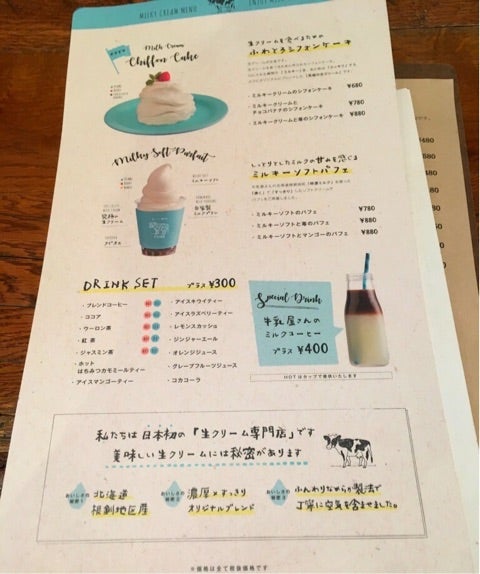 MILKY CREAM MENU
Milk Cream
Chiffon Cake
生クリームを食べるための
ふわとろシフォンケーキ
・ミルキークリームのシフォンケーキ ¥680
・ミルキークリームと
チョコバナナのシフォンケーキ ¥780
・ミルキークリームと苺のシフォンケーキ ¥880
Milky Soft Parfait
ミルキーソフト
究極の
生クリーム
自家製
ミルクプリン
タピオカ
しっとりとしたミルクの甘みを感じる
ミルキーソフトパフェ
・ミルキーソフトのパフェ ¥780
・ミルキーソフトと苺のパフェ ¥880
・ミルキーソフトとマンゴーのパフェ ¥880
DRINK SET プラス ¥300
・ブレンドコーヒー
・ココア
・ウーロン茶
・紅茶
・ジャスミン茶
・ホット
はちみつカモミールティー
・アイスマンゴーティー
・アイスキウイティー
・アイスラズベリーティー
・レモンスカッシュ
・ジンジャーエール
・オレンジジュース
・グレープフルーツジュース
・コカコーラ
Special Drink
牛乳屋さんの
ミルクコーヒー
プラス ¥400
HOTはカップで提供いたします
私たちは日本初の『生クリーム専門店』です
美味しい生クリームには秘密があります
おいしさの
秘密1
北海道
根釧地区産
おいしさの
秘密2
濃厚×すっきり
オリジナルブレンド
おいしさの
秘密3
ふんわりなめらか製法で
丁寧に空気を含ませました。
※価格は全て税抜価格です